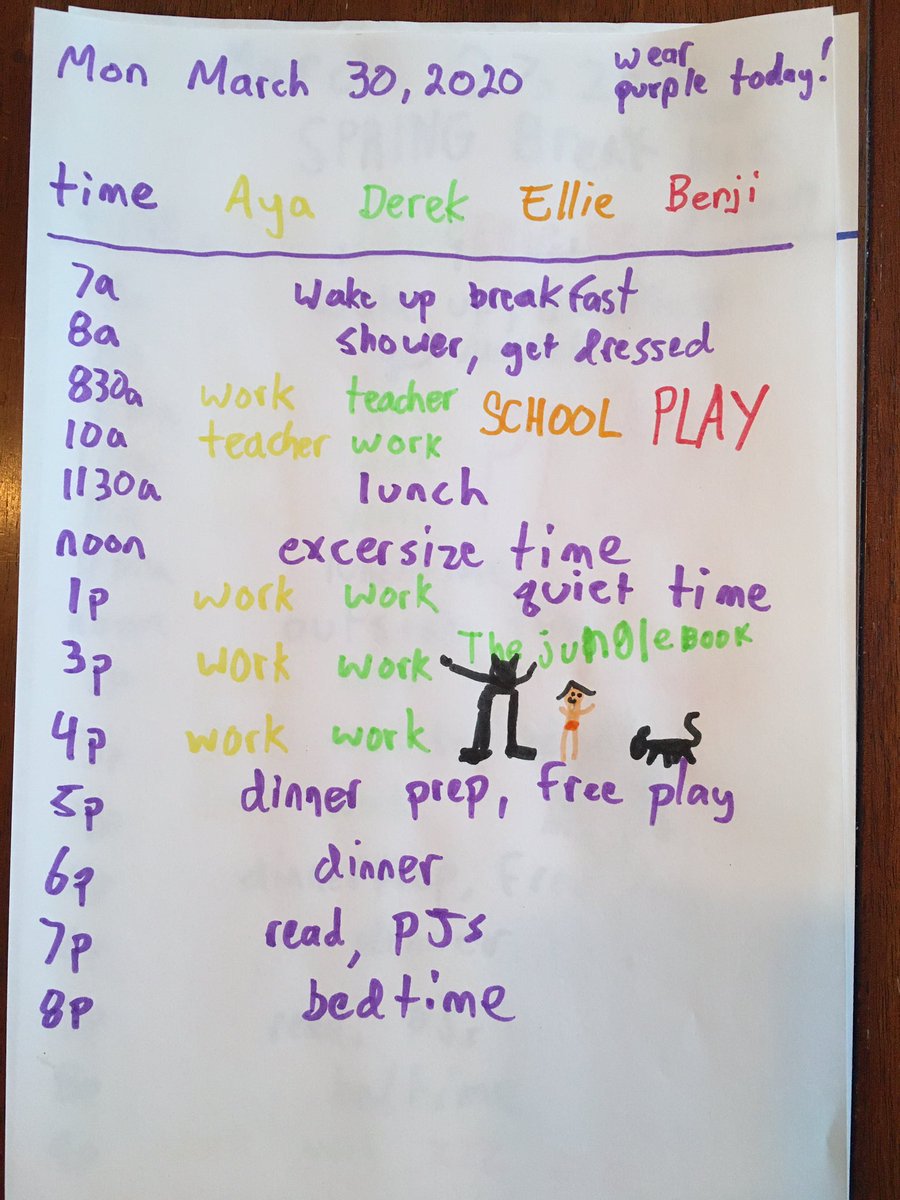 Mon March 30, 2020 wear purple today!
time Aya Derek Ellie Benji
7a wake up breakfast
8a shower, get dressed
830a work teacher SCHOOL PLAY
10a teacher work
1130a lunch
noon excersize time
1p work work quiet time
3p work work The jungle BOOK
4p work work
5p dinner prep, free play
6p dinner
7p read, PJs
8p bedtime